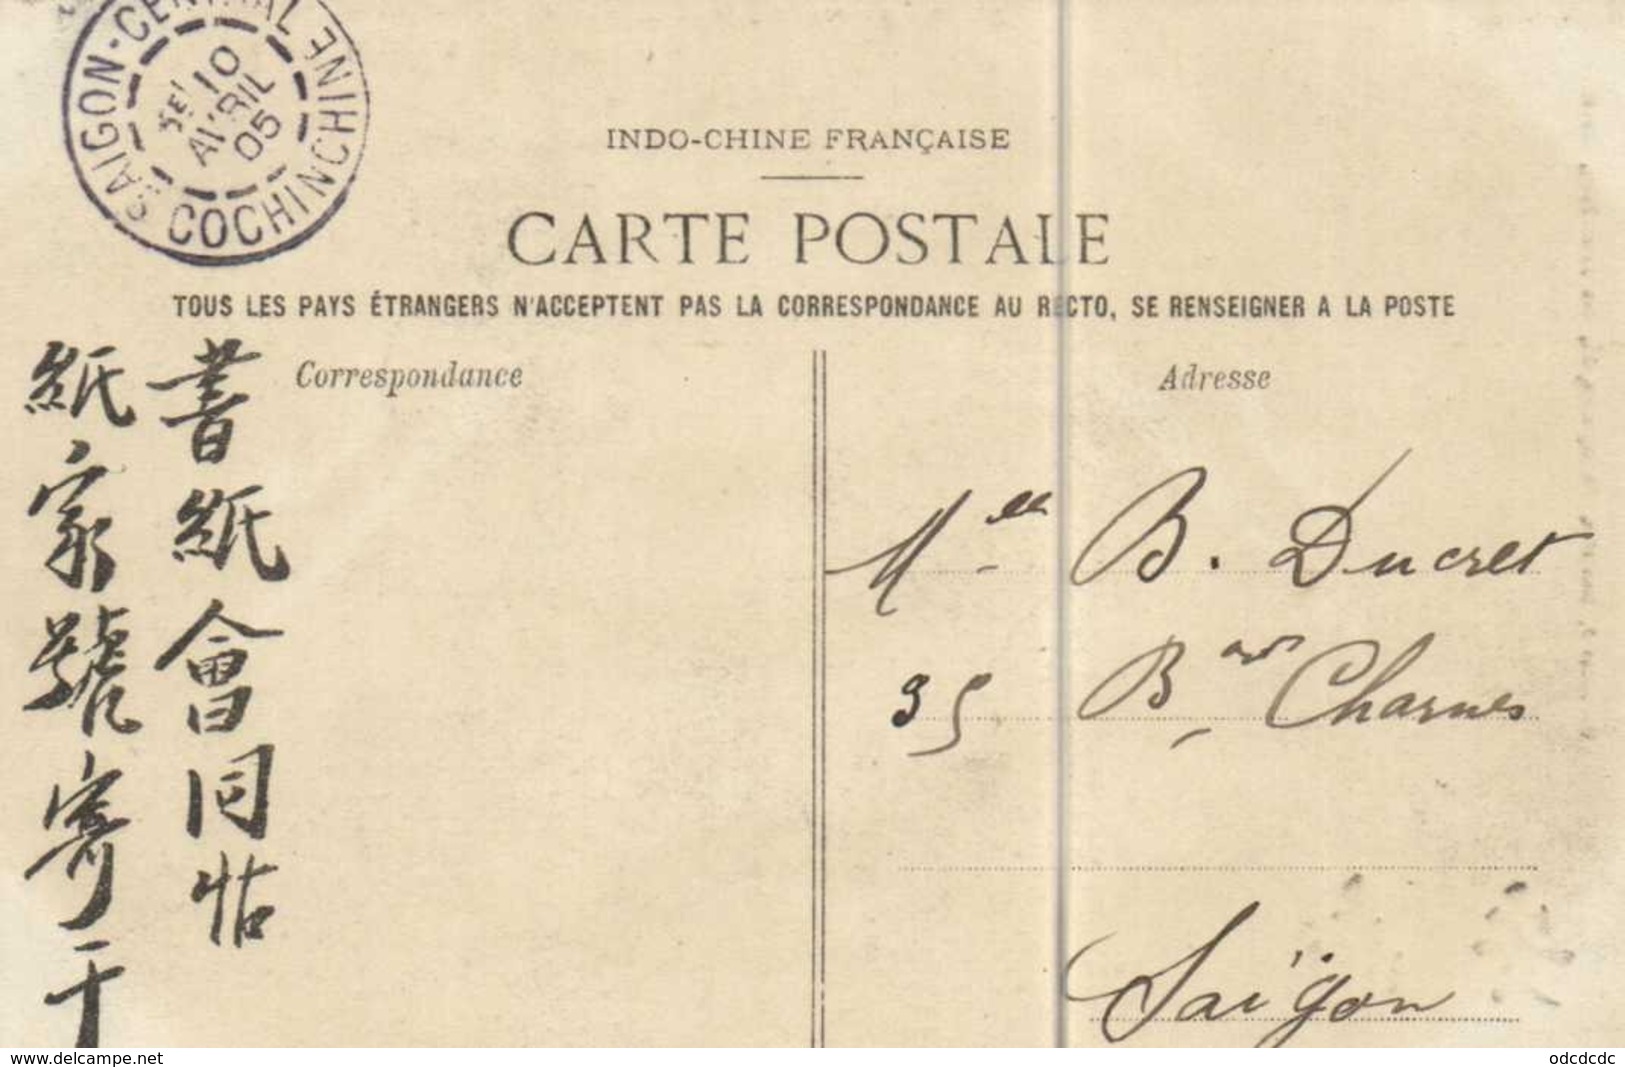 SAIGON-CENTRAL COCHINCHINE
10
AVRIL
05
INDO-CHINE FRANÇAISE
CARTE POSTALE
TOUS LES PAYS ÉTRANGERS N'ACCEPTENT PAS LA CORRESPONDANCE AU RECTO, SE RENSEIGNER A LA POSTE
Correspondance
Adresse
書紙會同帖
紙家號寄于
Mlle B. Ducret
35 Bard Charnes
Saïgon
www.delcampe.net
odcdcdc